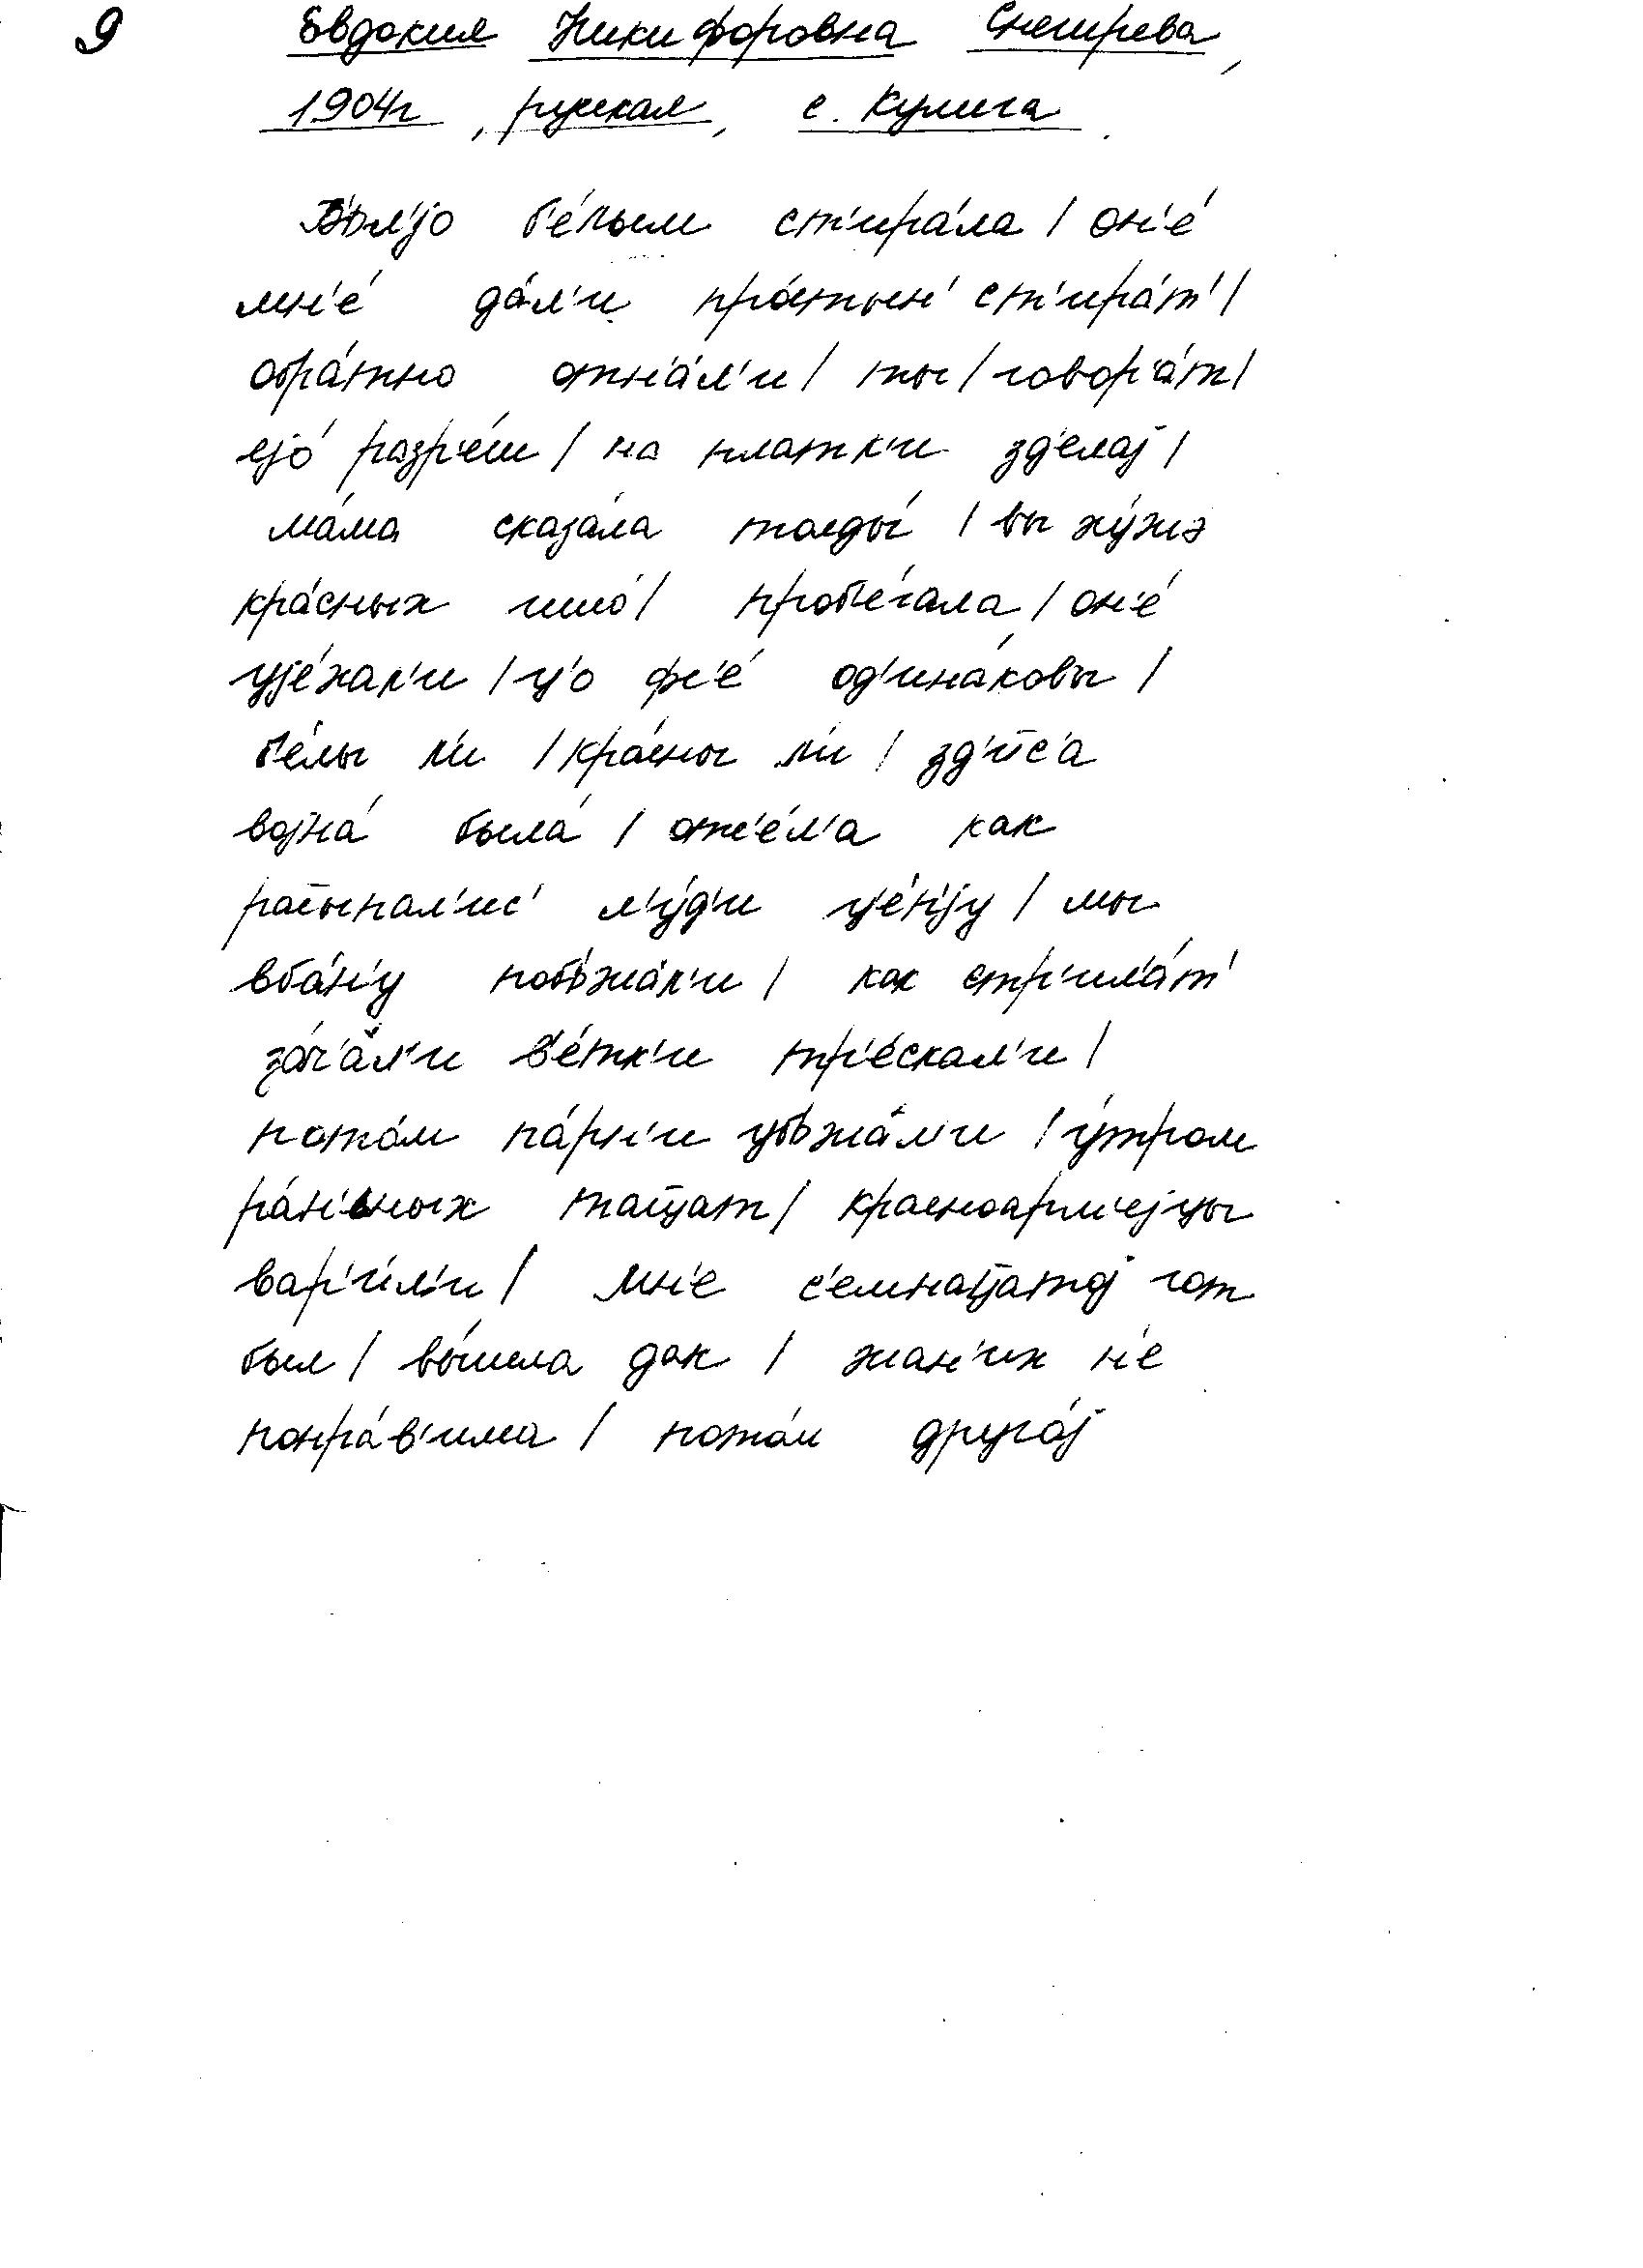 9 Евдокия Никифоровна Снегирева,
1904г, русская, с. Кулига.
б'ьл'jо б'е́лым ст'ира́ла / он'е́
мн'е́ да́л'и про́стын' ст'ира́т' /
обра́тно отн'а́л'и / ты / говор'а́т /
ejо́ разр'е́ш / на платк'и зд'елаj /
ма́ма сказа́ла тогды́ / вы ху́жэ
кра́сных ишо́ / проб'е́гала / он'е́
уjе́хал'и / ц'о фс'е́ од'ина́ковы /
б'е́лы л'и / кра́сны л'и / зд'и́с'а
воjна́ была́ / отс'е́л'а как
расы́пал'ис' л'у́д'и це́п'jу / мы
вба́н'у побьжа́л'и / как стр'ил'а́т'
зач'а́л'и в'е́тк'и тр'е́скал'и /
пото́м па́рн'и убьжа́л'и / у́тром
ра́н'ьных тащат / красноарм'еjцы
вар'и́л'и / мн'е с'емнацатоj гот
был / вы́шла дак / жан'их н'е
понра́в'илса / пото́м друго́j